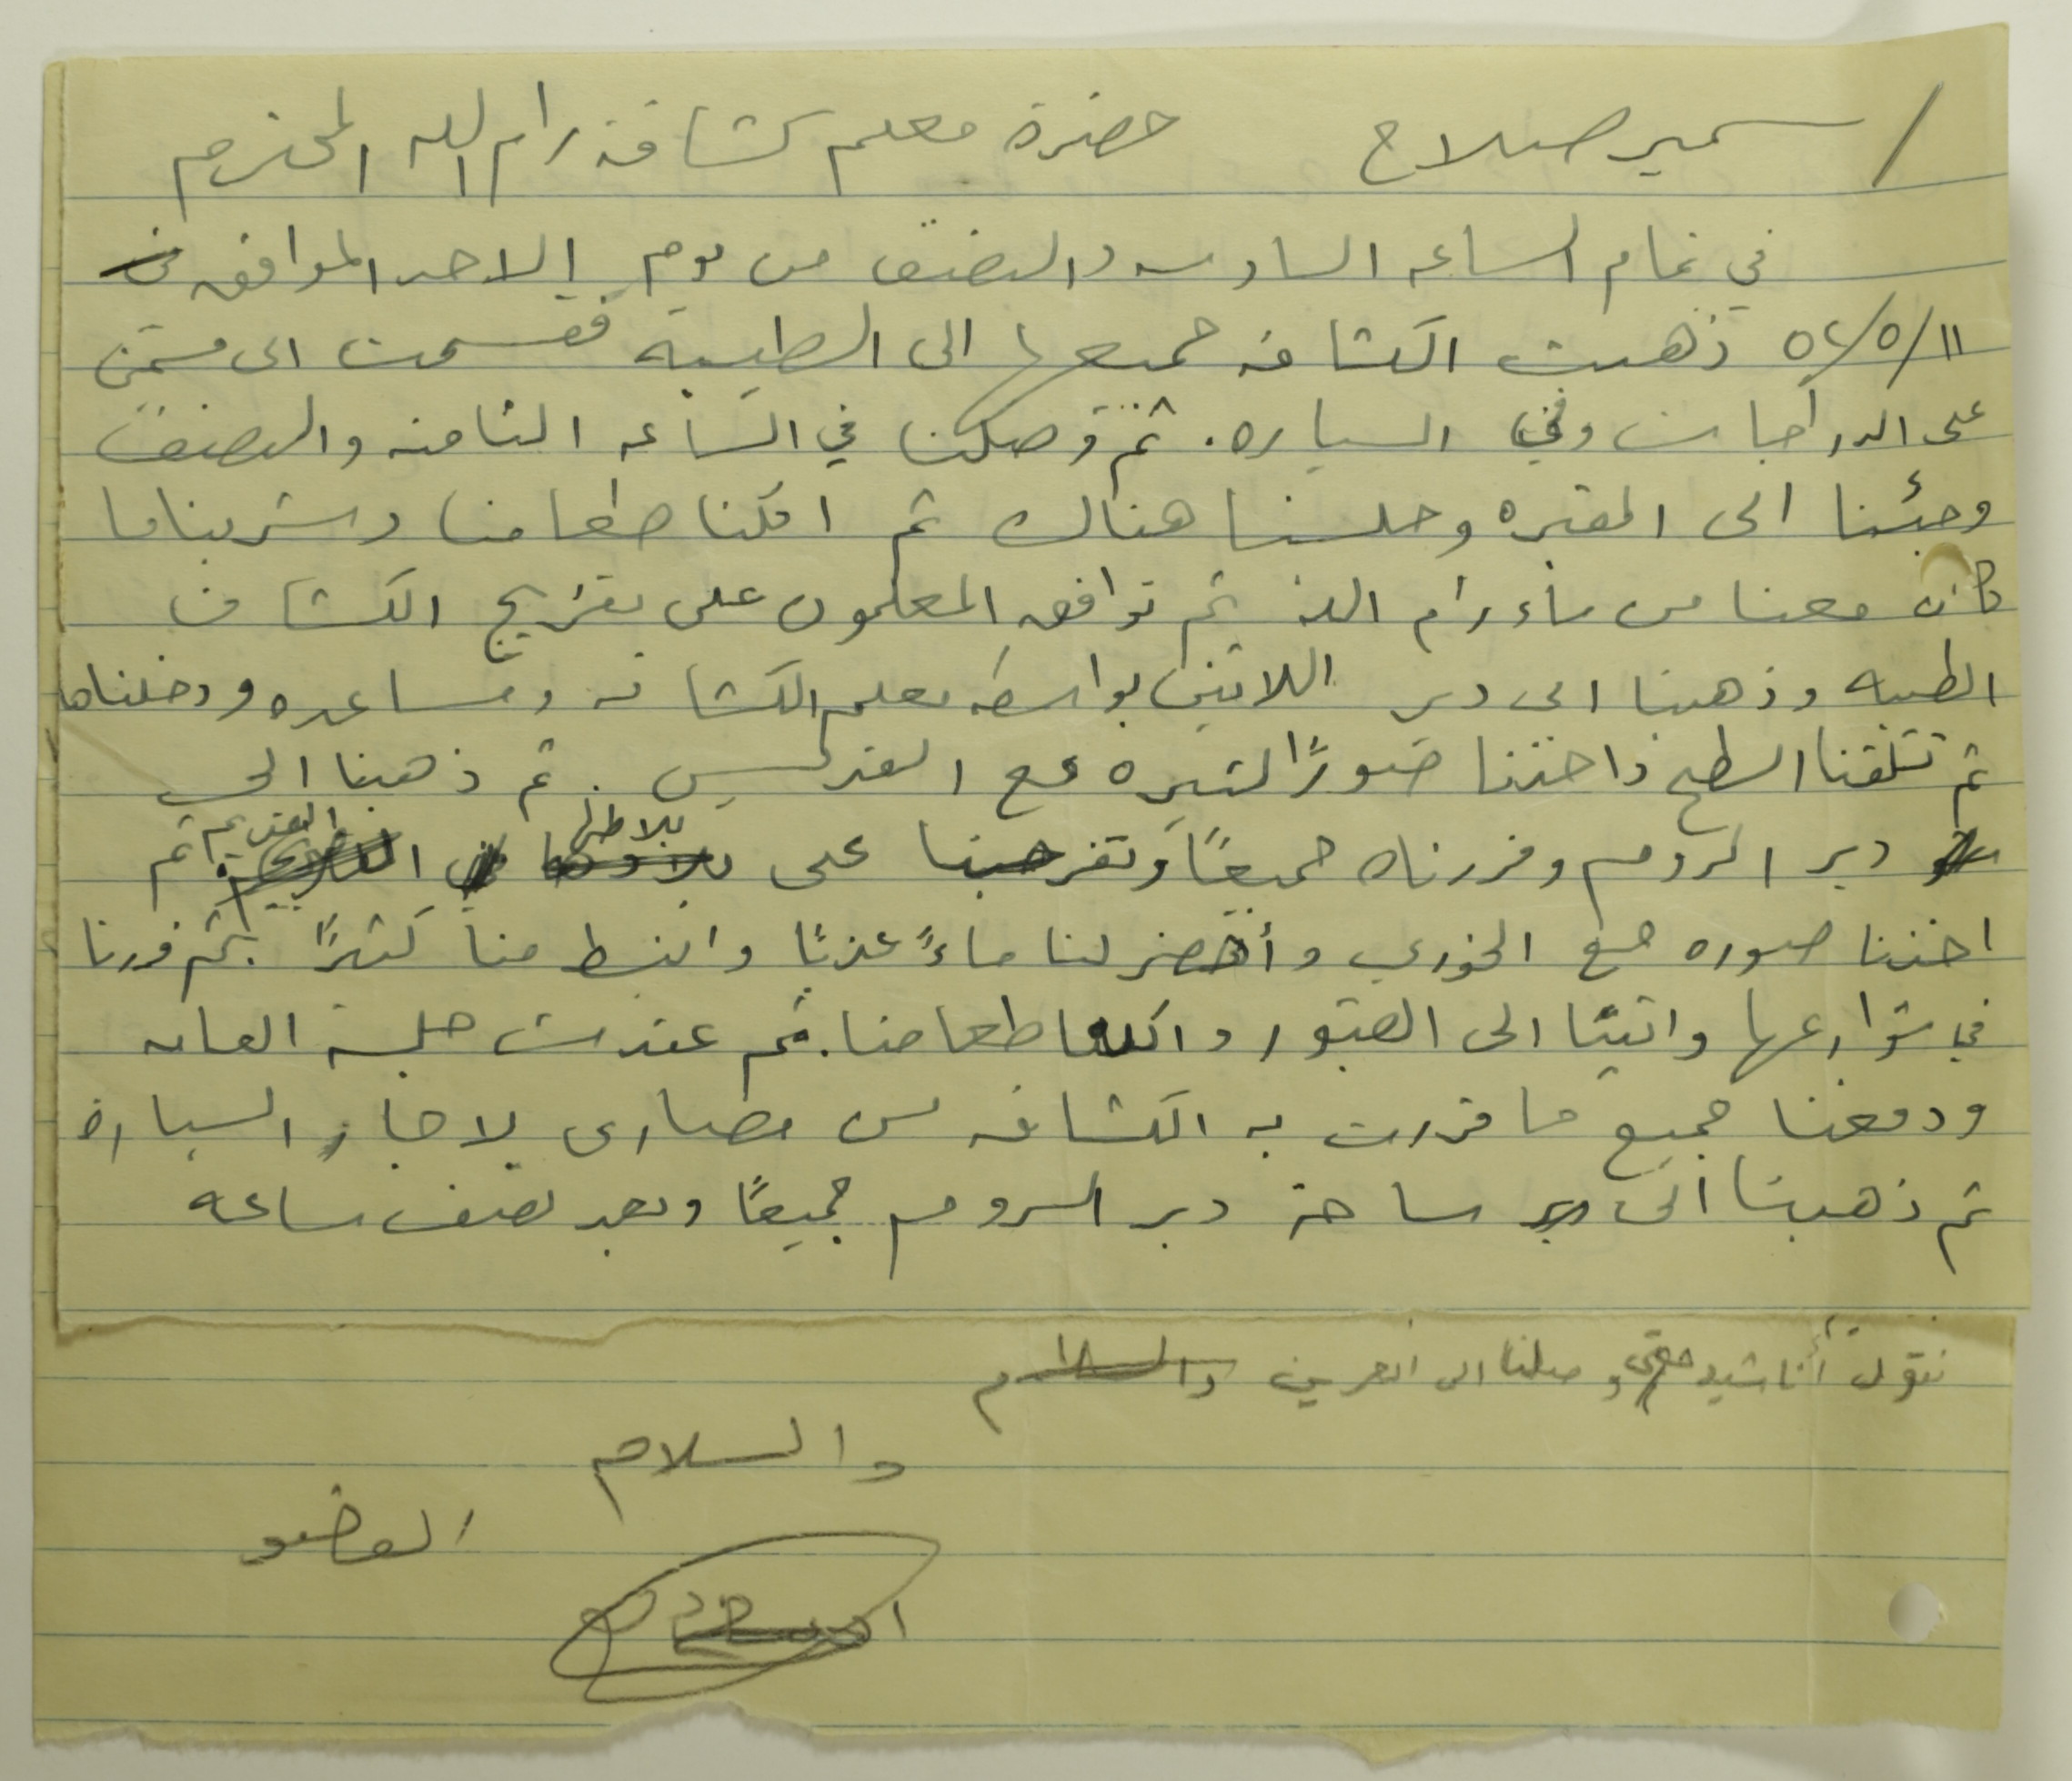 سمير صلاح / حضرة معلم كشافة رام الله المحترم
في تمام الساعه السادسه والنصف من يوم الاحد الموافق في
١١/٥/٥٢ ذهبت الكشافه جميعها الى الطيبه فقسمت الى قسمين
على الدراجات وفي السياره. ثم وصلنا في الساعه الثامنه والنصف
وجئنا الى المقبره وجلسنا هناك ثم اكلنا طعامنا وشربنا ما
كان معنا من ماء رام الله ثم توافق المعلمون على بتفريج الكشاف
الطيبه وذهبنا الى دير اللاتين بواسطه معلم الكشافه ومساعده ودخلناها
ثم تسلقنا السطح واخذنا صورًا كثيره مع القديس. ثم ذهبنا الى
دير الروم وفزرناه جميعًا وتفرجنا على بلاطها القديم ثم
اخذنا صوره مع الخوري وأحضر لنا ماءً عذبًا وانبسط منا كثيرًا. ثم فورنا
في شوارعها واتينا الى القبور واكلنا طعامنا. ثم عقدت جلسة العامه
ودفعنا جميع ما قررت به الكشافه من مصارى لاجار السيارة
ثم ذهبنا الى ساحة دير الروم جميعًا وبعد نصف ساعه
نقول أناشيد حتى وصلنا الى العرين والسلام
والسلام
العضو